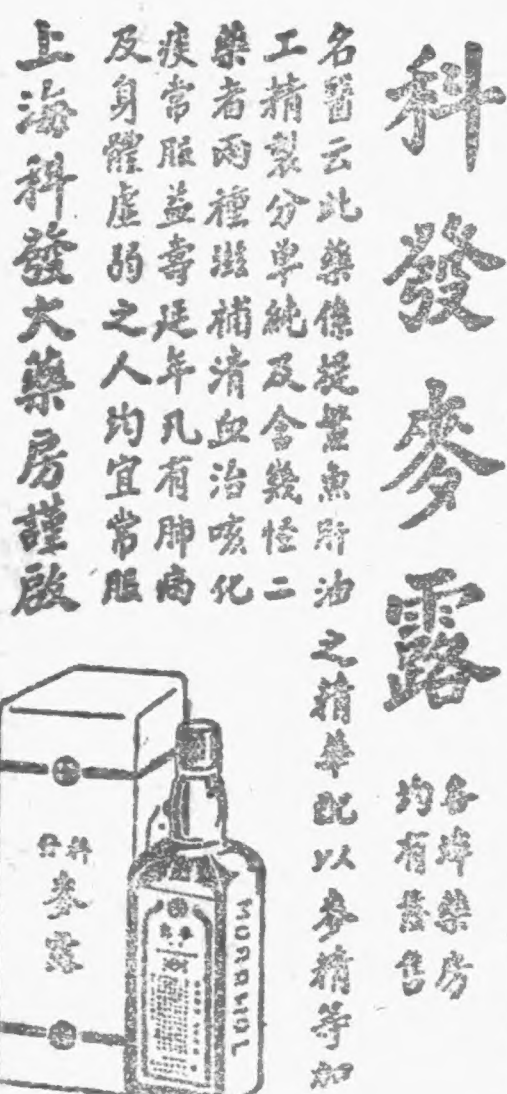 科發麥露
各埠藥房
均有發售
名醫云此藥係提鱉魚肝油之精華配以麥精等加
工精製分單純及含幾怪二
藥者兩種滋補清血治咳化
痰常服益壽延年凡有肺病
及身體虛弱之人均宜常服
上海科發大藥房謹啟
科發
麥露
MORRHUOL